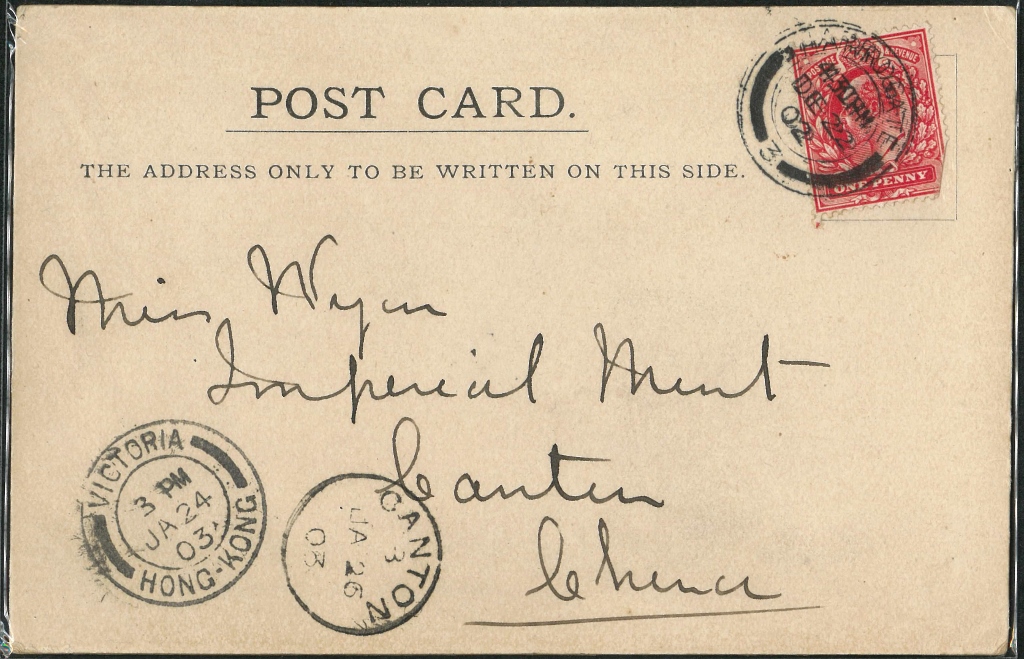 POST CARD.
THE ADDRESS ONLY TO BE WRITTEN ON THIS SIDE.
HARROGATE
4.30 PM
DE 22
02
3
ONE PENNY
Miss Wyon
Imperial Mint
Canton
China
VICTORIA
3 PM
JA 24
03
HONG-KONG
CANTON
3
JA 26
03